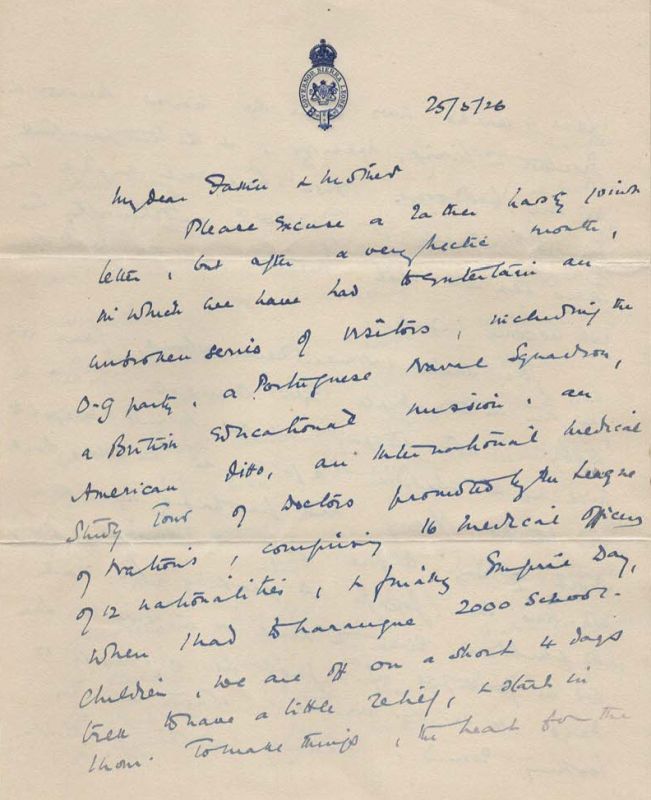 GOVERNOR SIERRA LEONE
25/5/26
My dear Father & Mother
Please excuse a rather hasty joint
letter, but after a very hectic month,
in which we have had to entertain an
unbroken series of visitors, including the
O-G party, a Portuguese Naval Squadron,
a British Educational mission, an
American ditto, an International Medical
Study Tour of Doctors promoted by the League
of Nations, comprising 16 Medical Officers
of 12 nationalities, & finally Empire Day,
when I had to harangue 2000 School-
children, we are off on a short 4 days
trek to have a little relief, & start in
1 hour. To make things, the heat for the